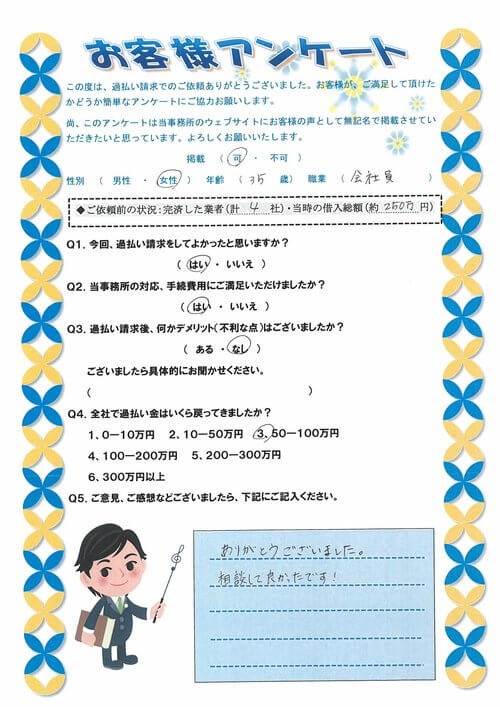 お客様アンケート
この度は、過払い請求でのご依頼ありがとうございました。お客様が、ご満足して頂けた
かどうか簡単なアンケートにご協力お願いします。
尚、このアンケートは当事務所のウェブサイトにお客様の声として無記名で掲載させてい
ただきたいと思っています。よろしくお願いいたします。
掲載 ( 可 ・ 不可 )
性別 ( 男性 ・ 女性 ) 年齢 ( 35 歳) 職業 ( 会社員 )
◆ご依頼前の状況:完済した業者(計 4 社)・当時の借入総額(約 250万 円)
Q1. 今回、過払い請求をしてよかったと思いますか?
( はい ・ いいえ )
Q2. 当事務所の対応、手続費用にご満足いただけましたか?
( はい ・ いいえ )
Q3. 過払い請求後、何かデメリット(不利な点)はございましたか?
( ある ・ なし )
ございましたら具体的にお聞かせください。
( )
Q4. 全社で過払い金はいくら戻ってきましたか?
1、0-10万円 2、10-50万円 3、50-100万円
4、100-200万円 5、200-300万円
6、300万円以上
Q5. ご意見、ご感想などございましたら、下記にご記入ください。
ありがとうございました。
相談して良かったです!